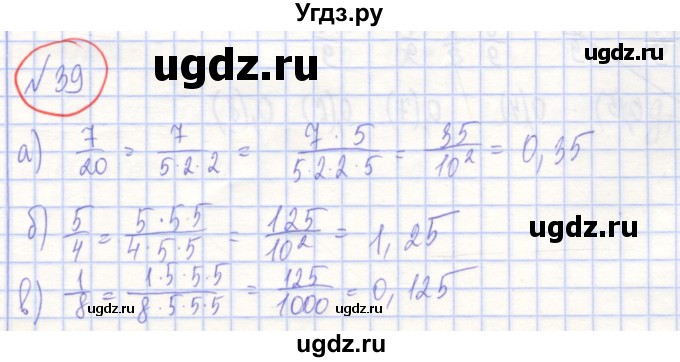 Угдз.ру
№39
ugdz.ru
ugdz.ru
а) 7/20 = 7/(5·2·2) = (7·5)/(5·2·2·5) = 35/10² = 0,35
б) 5/4 = (5·5·5)/(4·5·5) = 125/10² = 1,25
ugdz.ru
ugdz.ru
в) 1/8 = (1·5·5·5)/(8·5·5·5) = 125/1000 = 0,125
ugdz.ru
ugdz.ru
ugdz.ru